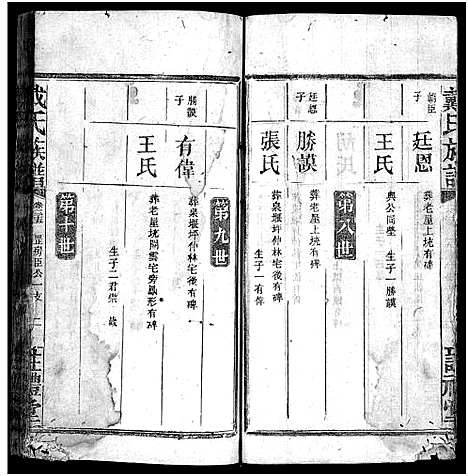 戴氏族譜
朝臣子
廷恩
葬老屋上垅有碑
王氏
與公同塋 生子一 勝謨
第八世
廷恩子
勝謨
葬老屋上垅有碑
張氏
葬泉堰坪仲林宅後有碑
生子一 有偉
第九世
勝謨子
有偉
葬泉堰坪仲林宅後有碑
王氏
葬老屋垅陽雲宅旁鳳形有碑
生子二 君崇
第十世
戴氏族譜